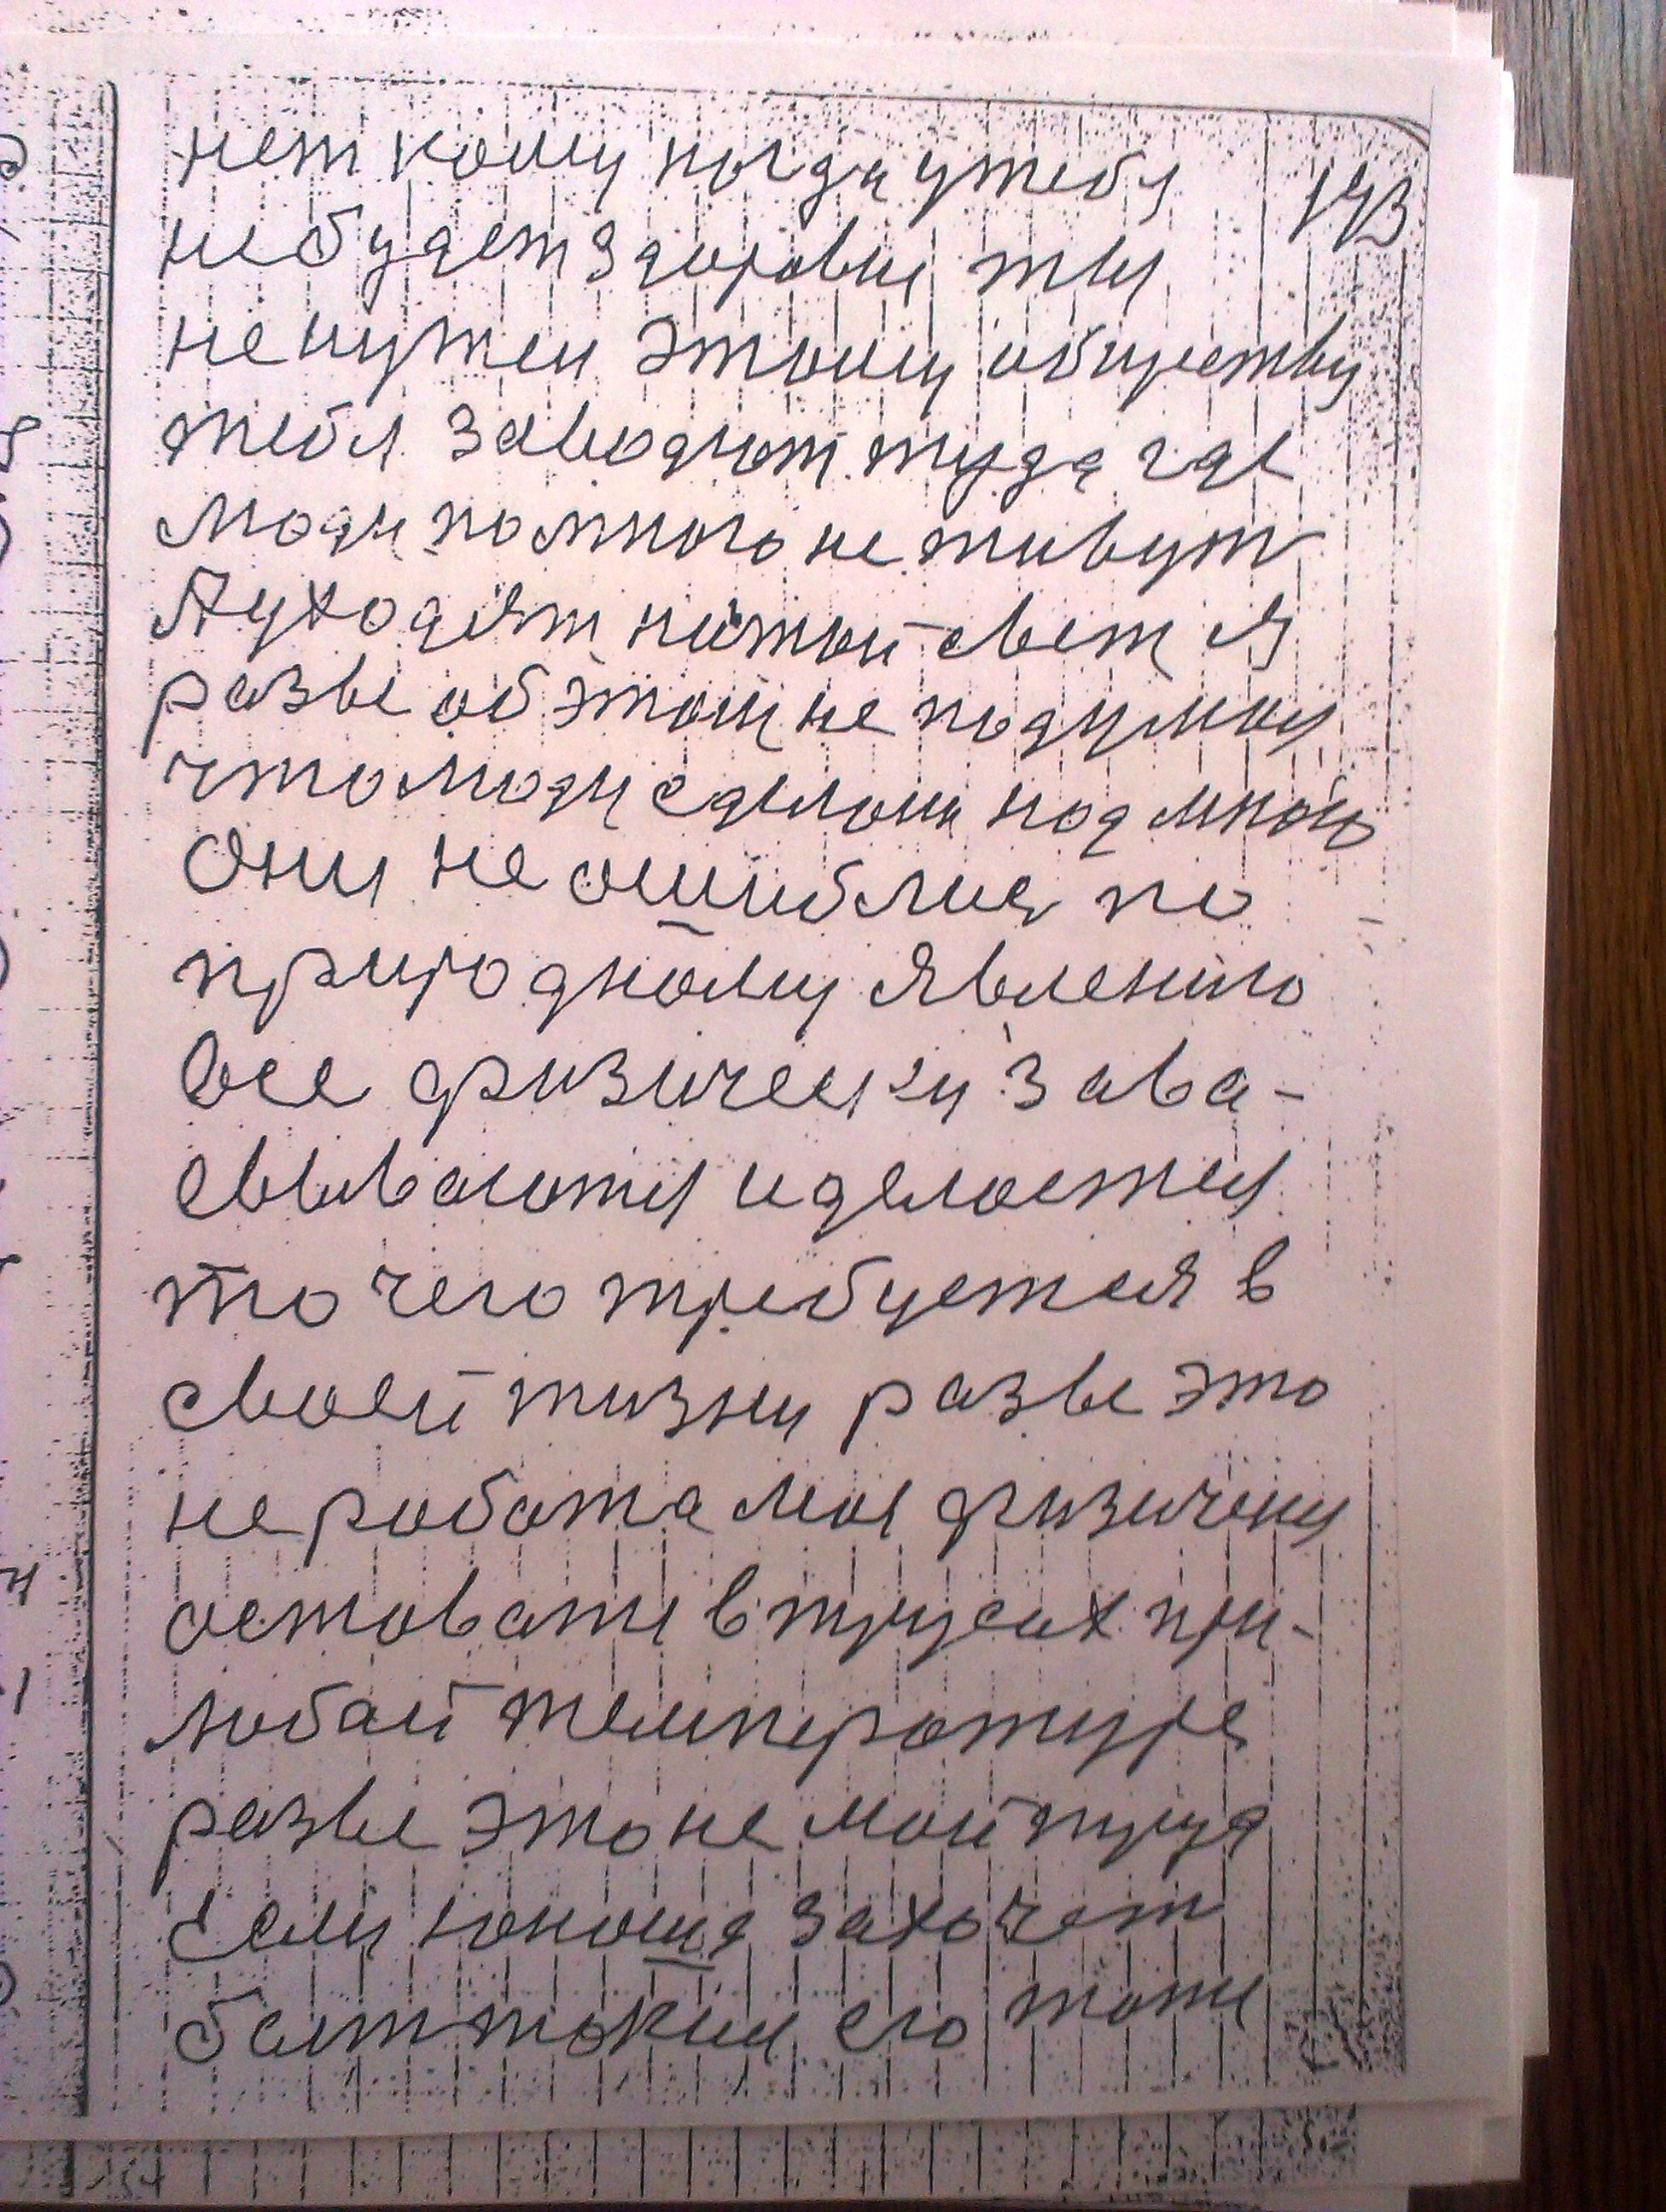 нет кому когда утебя 193
небудет здоровия ты
ненужен этому обществу
тебя заводют туда где
люди помного не живут
Ауходят натой свет я
разве об этом не подумал
что люди сделали надмною
Они не ошиблися по
природному явлению
все физически зава-
евываются иделается
то чего требуется в
своей жизни разве это
не работа моя физически
оставати в трусах при-
любай температуре
разве это не мой труд
Если юноша захочет
бетт таким его тоже